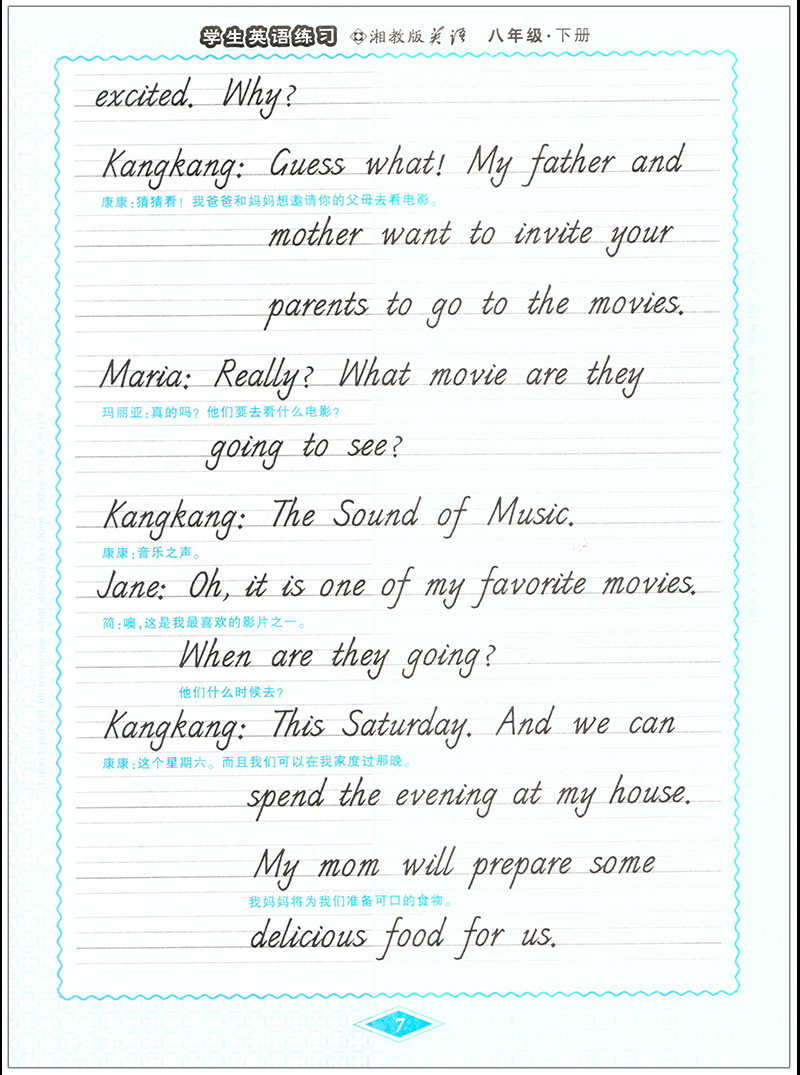 学生英语练习 湘教版英语 八年级·下册
excited. Why?
Kangkang: Guess what! My father and
康康:猜猜看! 我爸爸和妈妈想邀请你的父母去看电影。
mother want to invite your
parents to go to the movies.
Maria: Really? What movie are they
玛丽亚:真的吗? 他们要去看什么电影?
going to see?
Kangkang: The Sound of Music.
康康:音乐之声。
Jane: Oh, it is one of my favorite movies.
简:噢,这是我最喜欢的影片之一。
When are they going?
他们什么时候去?
Kangkang: This Saturday. And we can
康康:这个星期六。而且我们可以在我家度过那晚。
spend the evening at my house.
My mom will prepare some
我妈妈将为我们准备可口的食物。
delicious food for us.
7